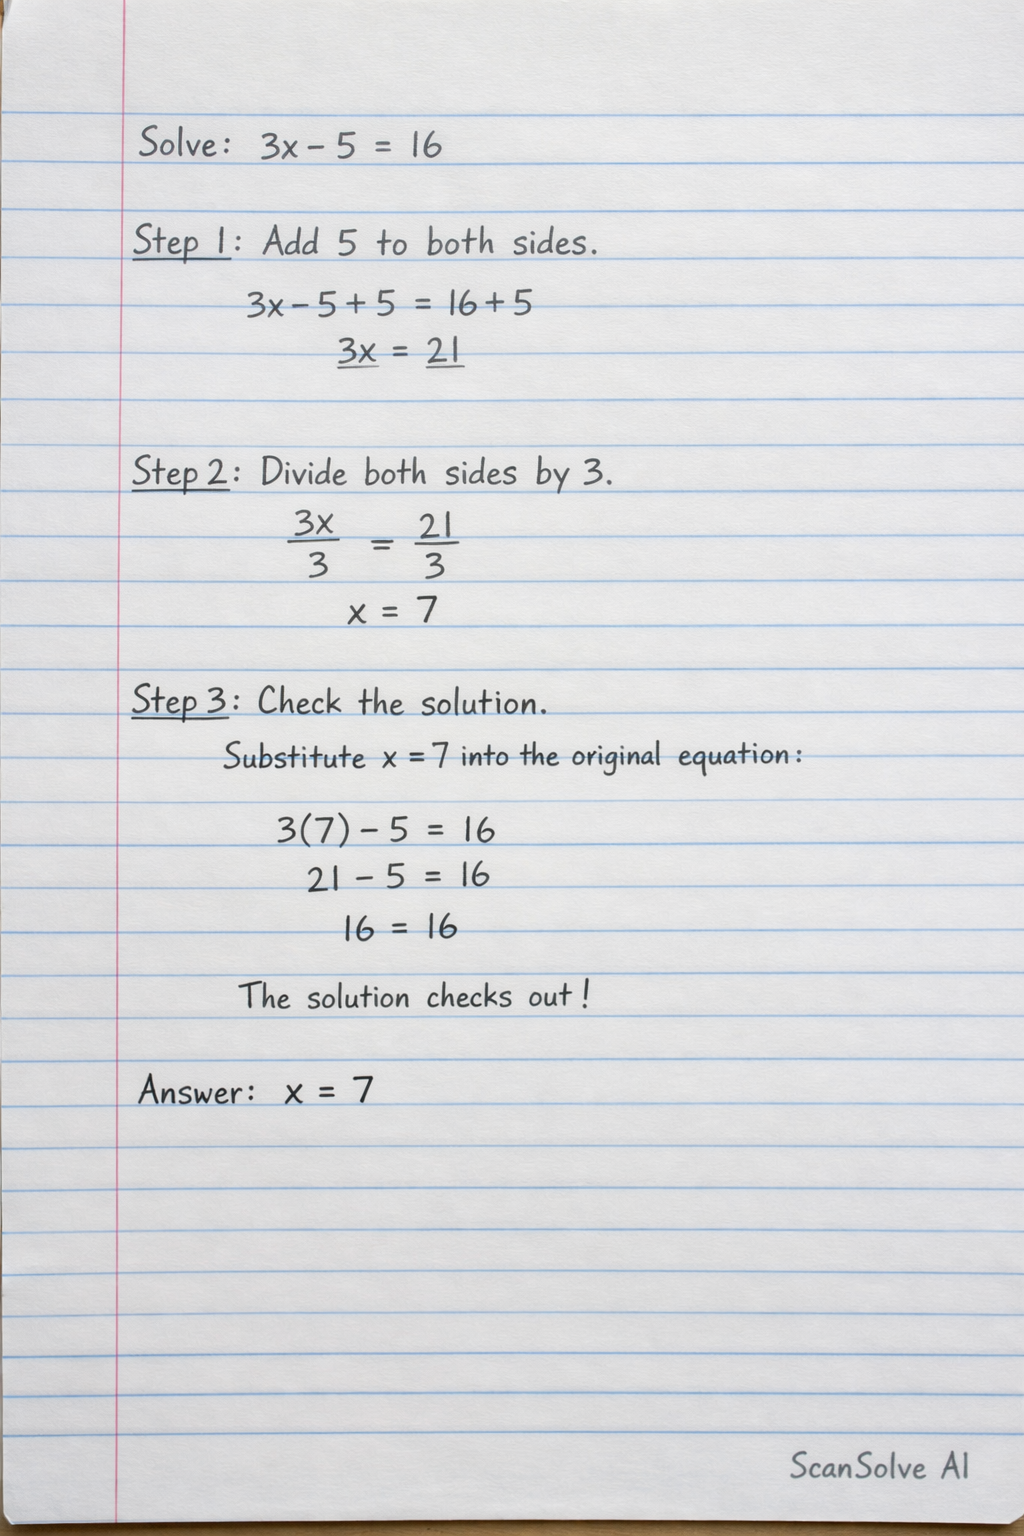 Solve: 3x - 5 = 16
Step 1: Add 5 to both sides.
3x - 5 + 5 = 16 + 5
3x = 21
Step 2: Divide both sides by 3.
3x/3 = 21/3
x = 7
Step 3: Check the solution.
Substitute x = 7 into the original equation:
3(7) - 5 = 16
21 - 5 = 16
16 = 16
The solution checks out!
Answer: x = 7
ScanSolve AI